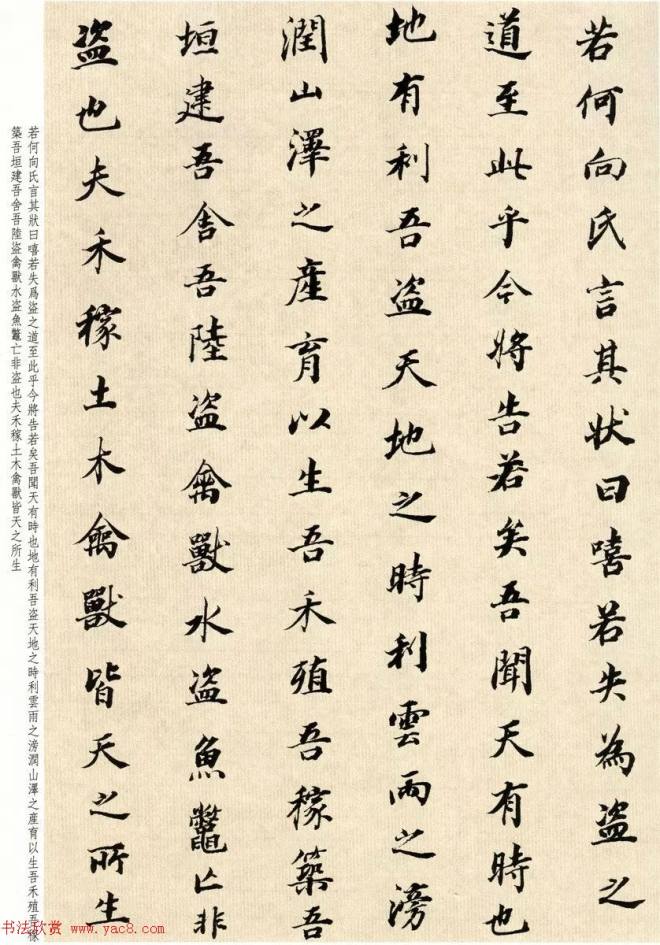 若何向氏言其状曰嘻若失為盗之
道至此乎今將告若矣吾聞天有時也
地有利吾盗天地之時利雲雨之滂
潤山澤之產育以生吾禾殖吾稼築吾
垣建吾舍吾陸盗禽獸水盗魚鼈亡非
盗也夫禾稼土木禽獸皆天之所生
若何向氏言其狀曰嘻若失爲盗之道至此乎今將告若矣吾聞天有時也地有利吾盗天地之時利雲雨之滂潤山澤之產育以生吾禾殖吾稼
築吾垣建吾舍吾陸盗禽獸水盗魚鼈亡非盗也夫禾稼土木禽獸皆天之所生
书法欣赏 www.yac8.com